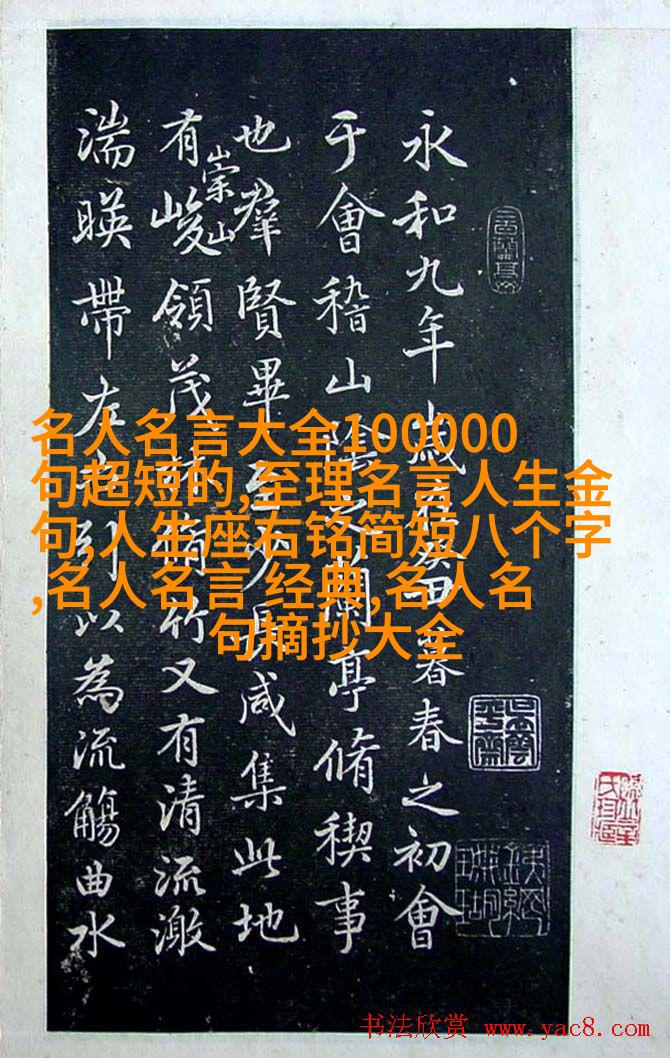 永和九年歲在癸丑暮春之初會
于會稽山陰之蘭亭脩稧事
也羣賢畢至少長咸集此地
有崇山峻領茂林脩竹又有清流激
湍暎帶左右引以為流觴曲水
名人名言大全100000
句超短的,至理名言人生金
句,人生座右铭简短八个字
,名人名言 经典,名人名
句摘抄大全
书法欣赏 www.yac8.com